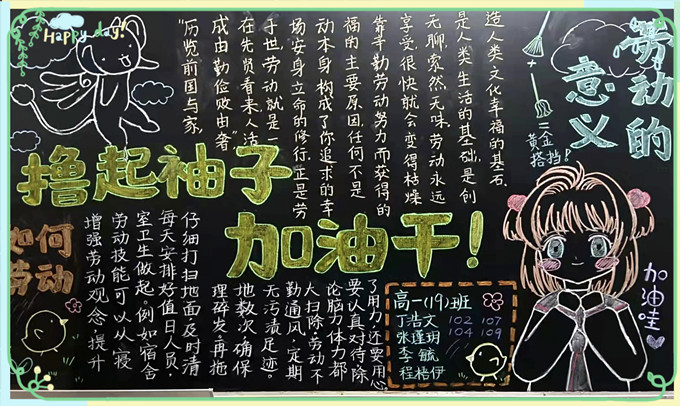 Happy day!
劳动的
意义
造人类文化幸福的基石.
是人类生活的基础,是创
无聊索然无味,劳动永远
享受很快就会变得枯燥
靠辛勤劳动努力而获得的
福的主要原因,任何不是
动本身构成了你追求的幸
场安身立命的修行,正是劳
于世,劳动就是一
在先贤看来,人活
成由勤俭败由奢”
“历览前国与家,
+
=
黄金
搭挡!
撸起袖子
加油干!
如何
劳动
了用力,还要用心
要认真对待,除
论脑力体力都
大扫除,劳动不
勤通风,定期
无污渍足迹。
地数次,确保
理碎发,再拖
仔细打扫地面及时清
每天安排好值日人员,
室卫生做起。例如宿舍
劳动技能可以从寝
增强劳动观念,提升
高一(19)班
丁浩文 102 107
张瑾玥 104 109
李毓
程梧伊
加油哇